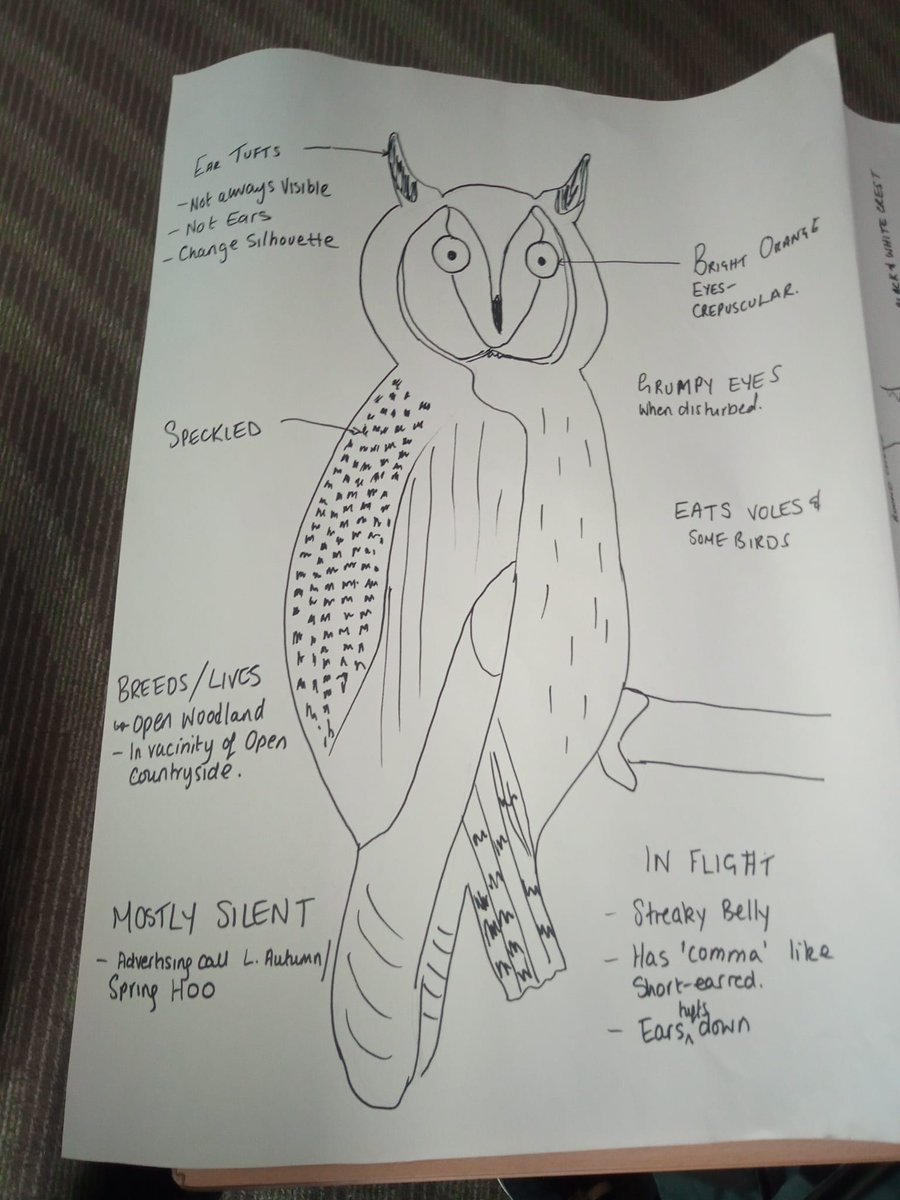 EAR TUFTS
- Not always Visible
- Not Ears
- Change Silhouette
BRIGHT ORANGE
EYES-
CREPUSCULAR.
GRUMPY EYES
when disturbed.
SPECKLED
EATS VOLES &
SOME BIRDS
BREEDS/LIVES
↳ Open Woodland
- In vacinity of Open
Countryside.
MOSTLY SILENT
- Advertising call L. Autumn/
Spring HOO
IN FLIGHT
- Streaky Belly
- Has 'comma' like
Short-earred.
- Ears ^tufts down
BLACK & WHITE CREST